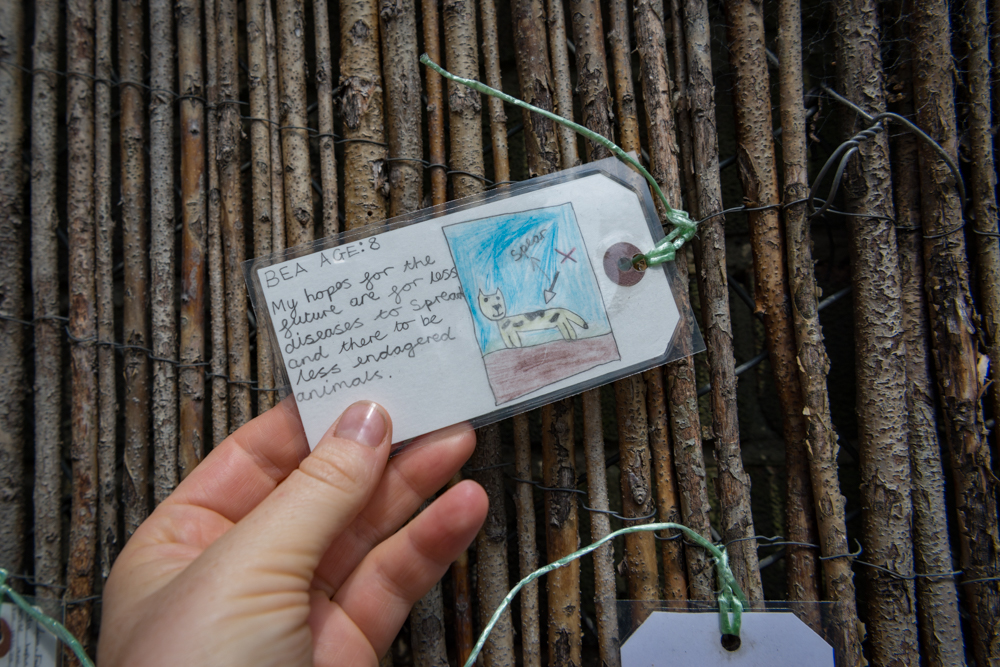 BEA AGE:8
My hopes for the
future are for less
diseases to spread
and there to be
less endagered
animals.
spear
X